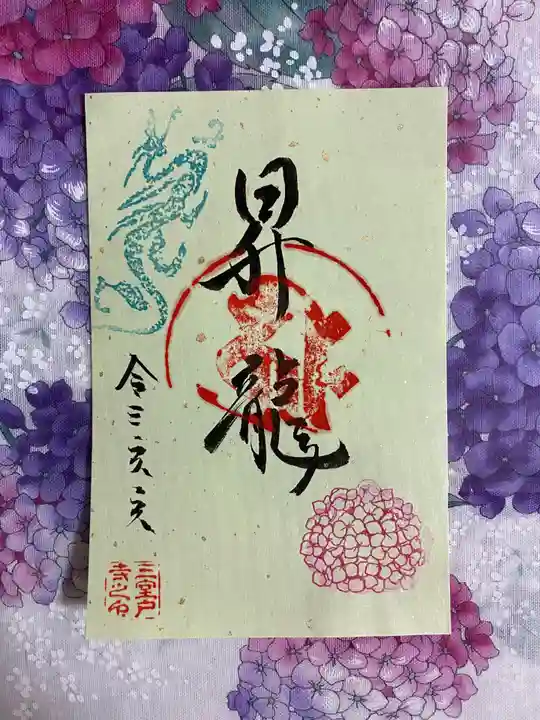 昇龍
令三、六、六
三室戸
寺之印